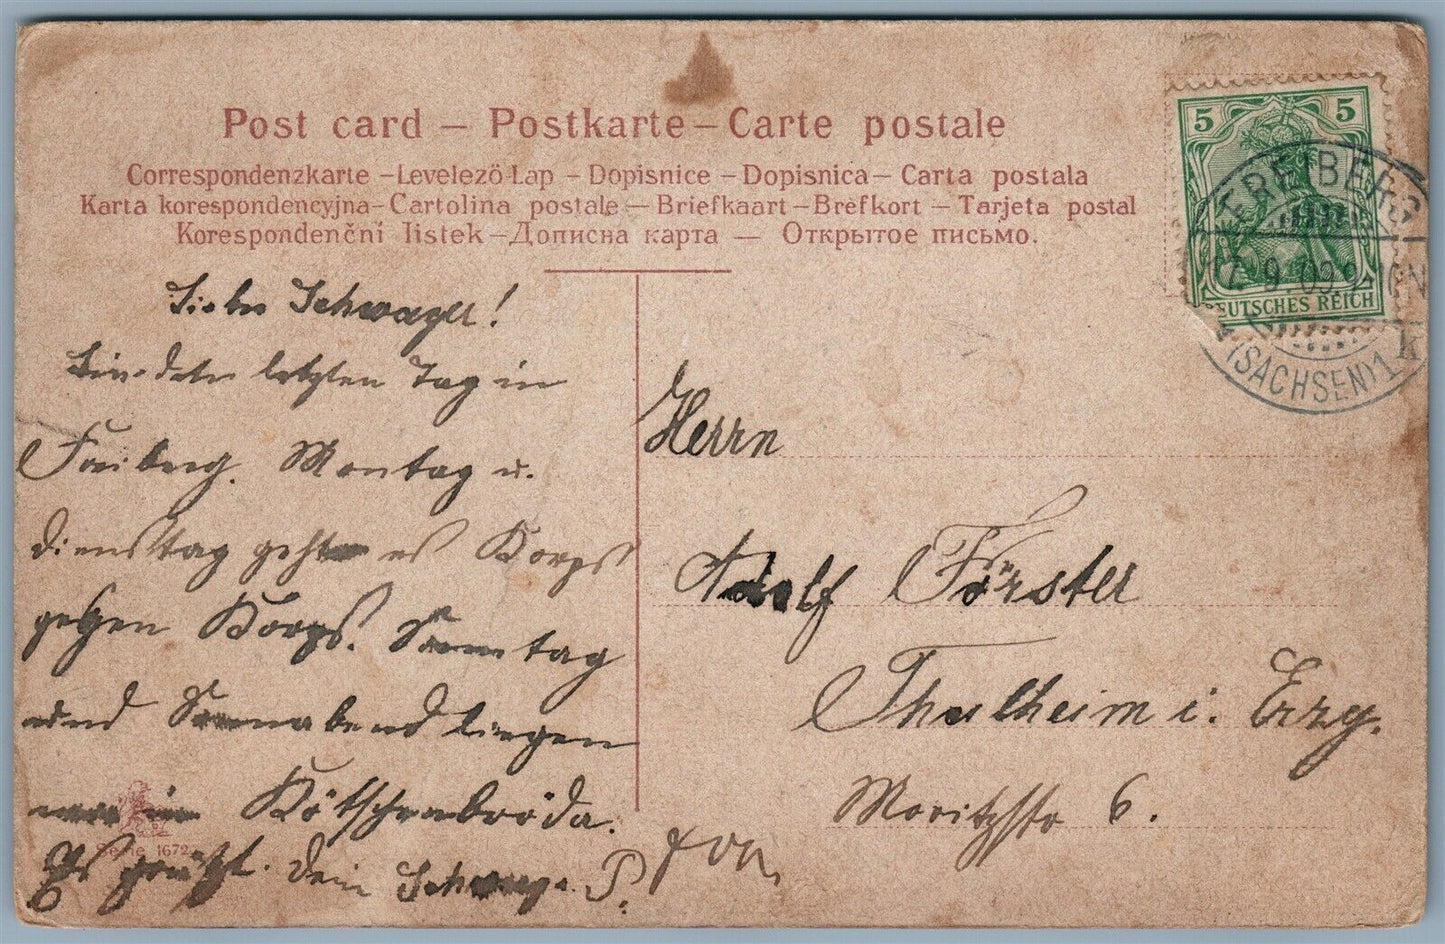 Post card – Postkarte – Carte postale
Correspondenzkarte – Levelező-Lap – Dopisnice – Dopisnica – Carta postala
Karta korespondencyjna – Cartolina postale – Briefkaart – Brefkort – Tarjeta postal
Korespondenční listek – Дописна карта — Открытое письмо.
5 5
DEUTSCHES REICH
FREIBERG
9.09.9
(SACHSEN) 1 k
Lieber Schwager!
letzten Tag in
Freiberg. Montag u.
Dienstag geht es Korps
gegen Korps. Sonntag
und Sonnabend liegen
wir in Kötzschenbroda.
Es grüßt Dein Schwager P.
Serie 1672
Herrn
Adolf Förster
Thalheim i. Erzg.
Moritzstr 6.